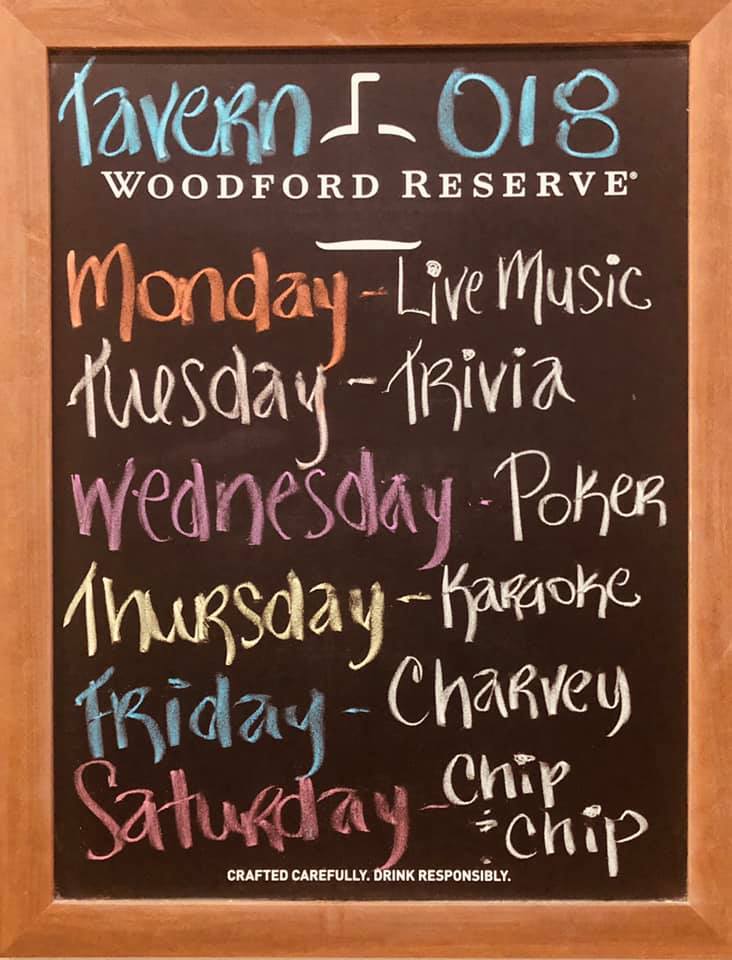 Tavern 018
WOODFORD RESERVE®
Monday - Live Music
Tuesday - Trivia
Wednesday - Poker
Thursday - Karaoke
Friday - Charvey
Saturday - Chip
& Chip
CRAFTED CAREFULLY. DRINK RESPONSIBLY.